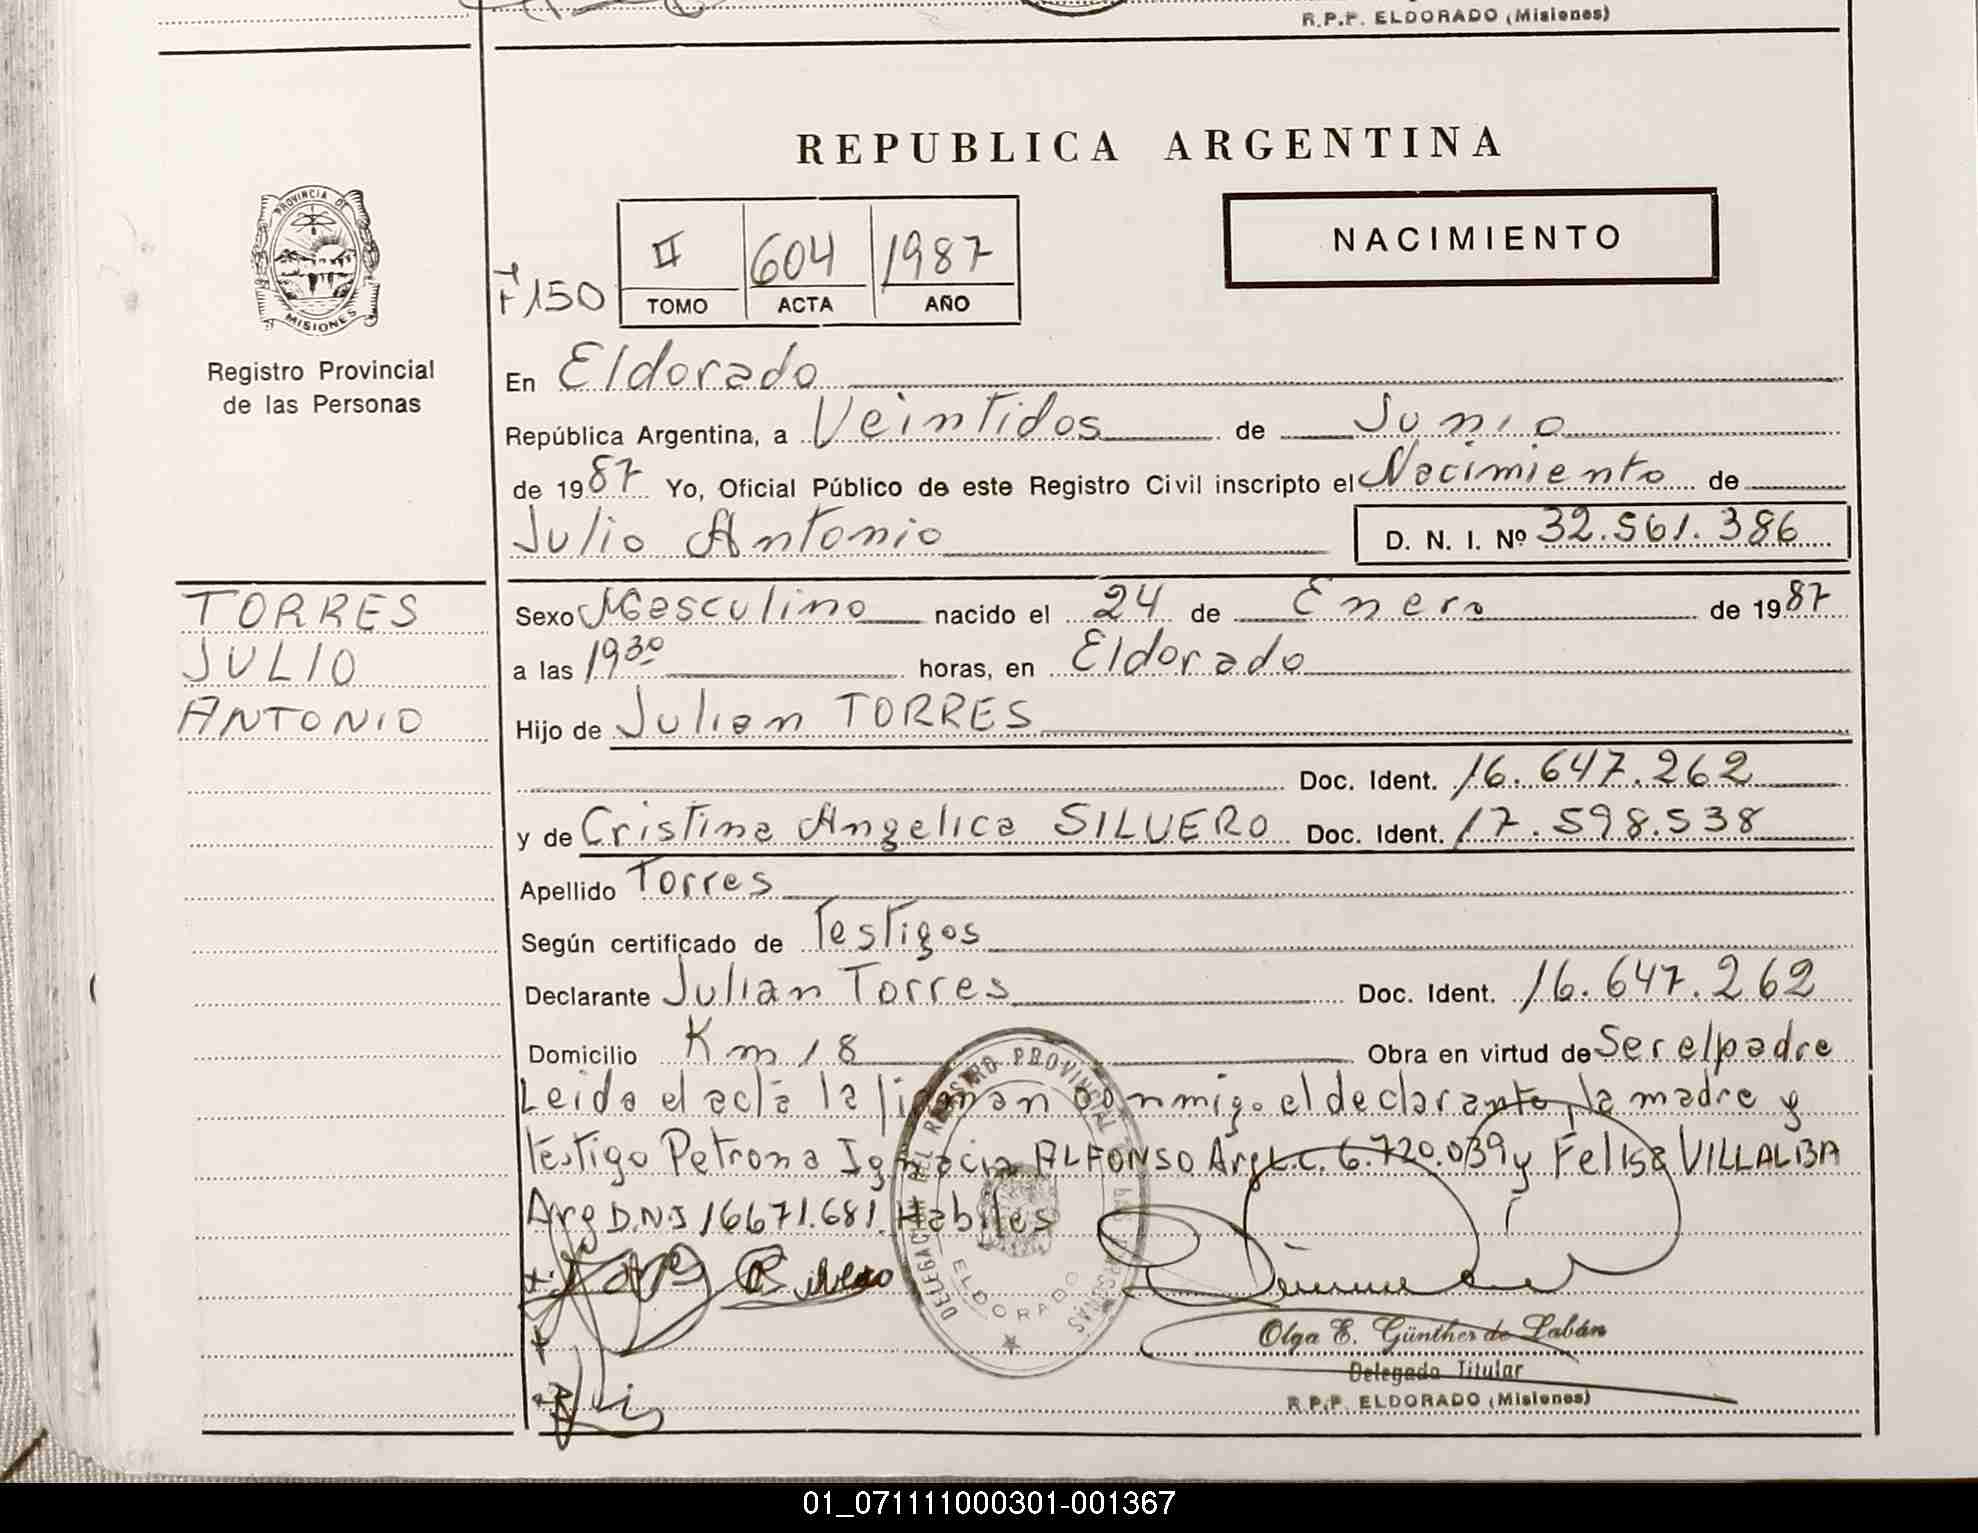 R.P.P. ELDORADO (Misiones)
REPUBLICA ARGENTINA
PROVINCIA DE
MISIONES
Registro Provincial
de las Personas
F 150
II 604 1987
TOMO ACTA AÑO
NACIMIENTO
En Eldorado
República Argentina, a Veintidos de Junio
de 1987 Yo, Oficial Público de este Registro Civil inscripto el Nacimiento de
Julio Antonio D. N. I. Nº 32.561.386
TORRES
JULIO
ANTONIO
Sexo Masculino nacido el 24 de Enero de 1987
a las 19 30 horas, en Eldorado
Hijo de Julian TORRES
Doc. Ident. 16.647.262
y de Cristina Angelica SILVERO Doc. Ident. 17.598.538
Apellido Torres
Según certificado de Testigos
Declarante Julian Torres Doc. Ident. 16.647.262
Domicilio Km 18 Obra en virtud de Ser el padre
Leida el acta la firman conmigo el declarante, la madre y
testigo Petrona Ignacia ALFONSO Arg L.C. 6.720.039 y Felisa VILLALBA
Arg D.N.I 16671.681. Habiles
DELEGACION DEL REGISTRO PROVINCIAL DE LAS PERSONAS
ELDORADO
Olga E. Günther de Labán
Delegada Titular
R.P.P. ELDORADO (Misiones)
01_071111000301-001367